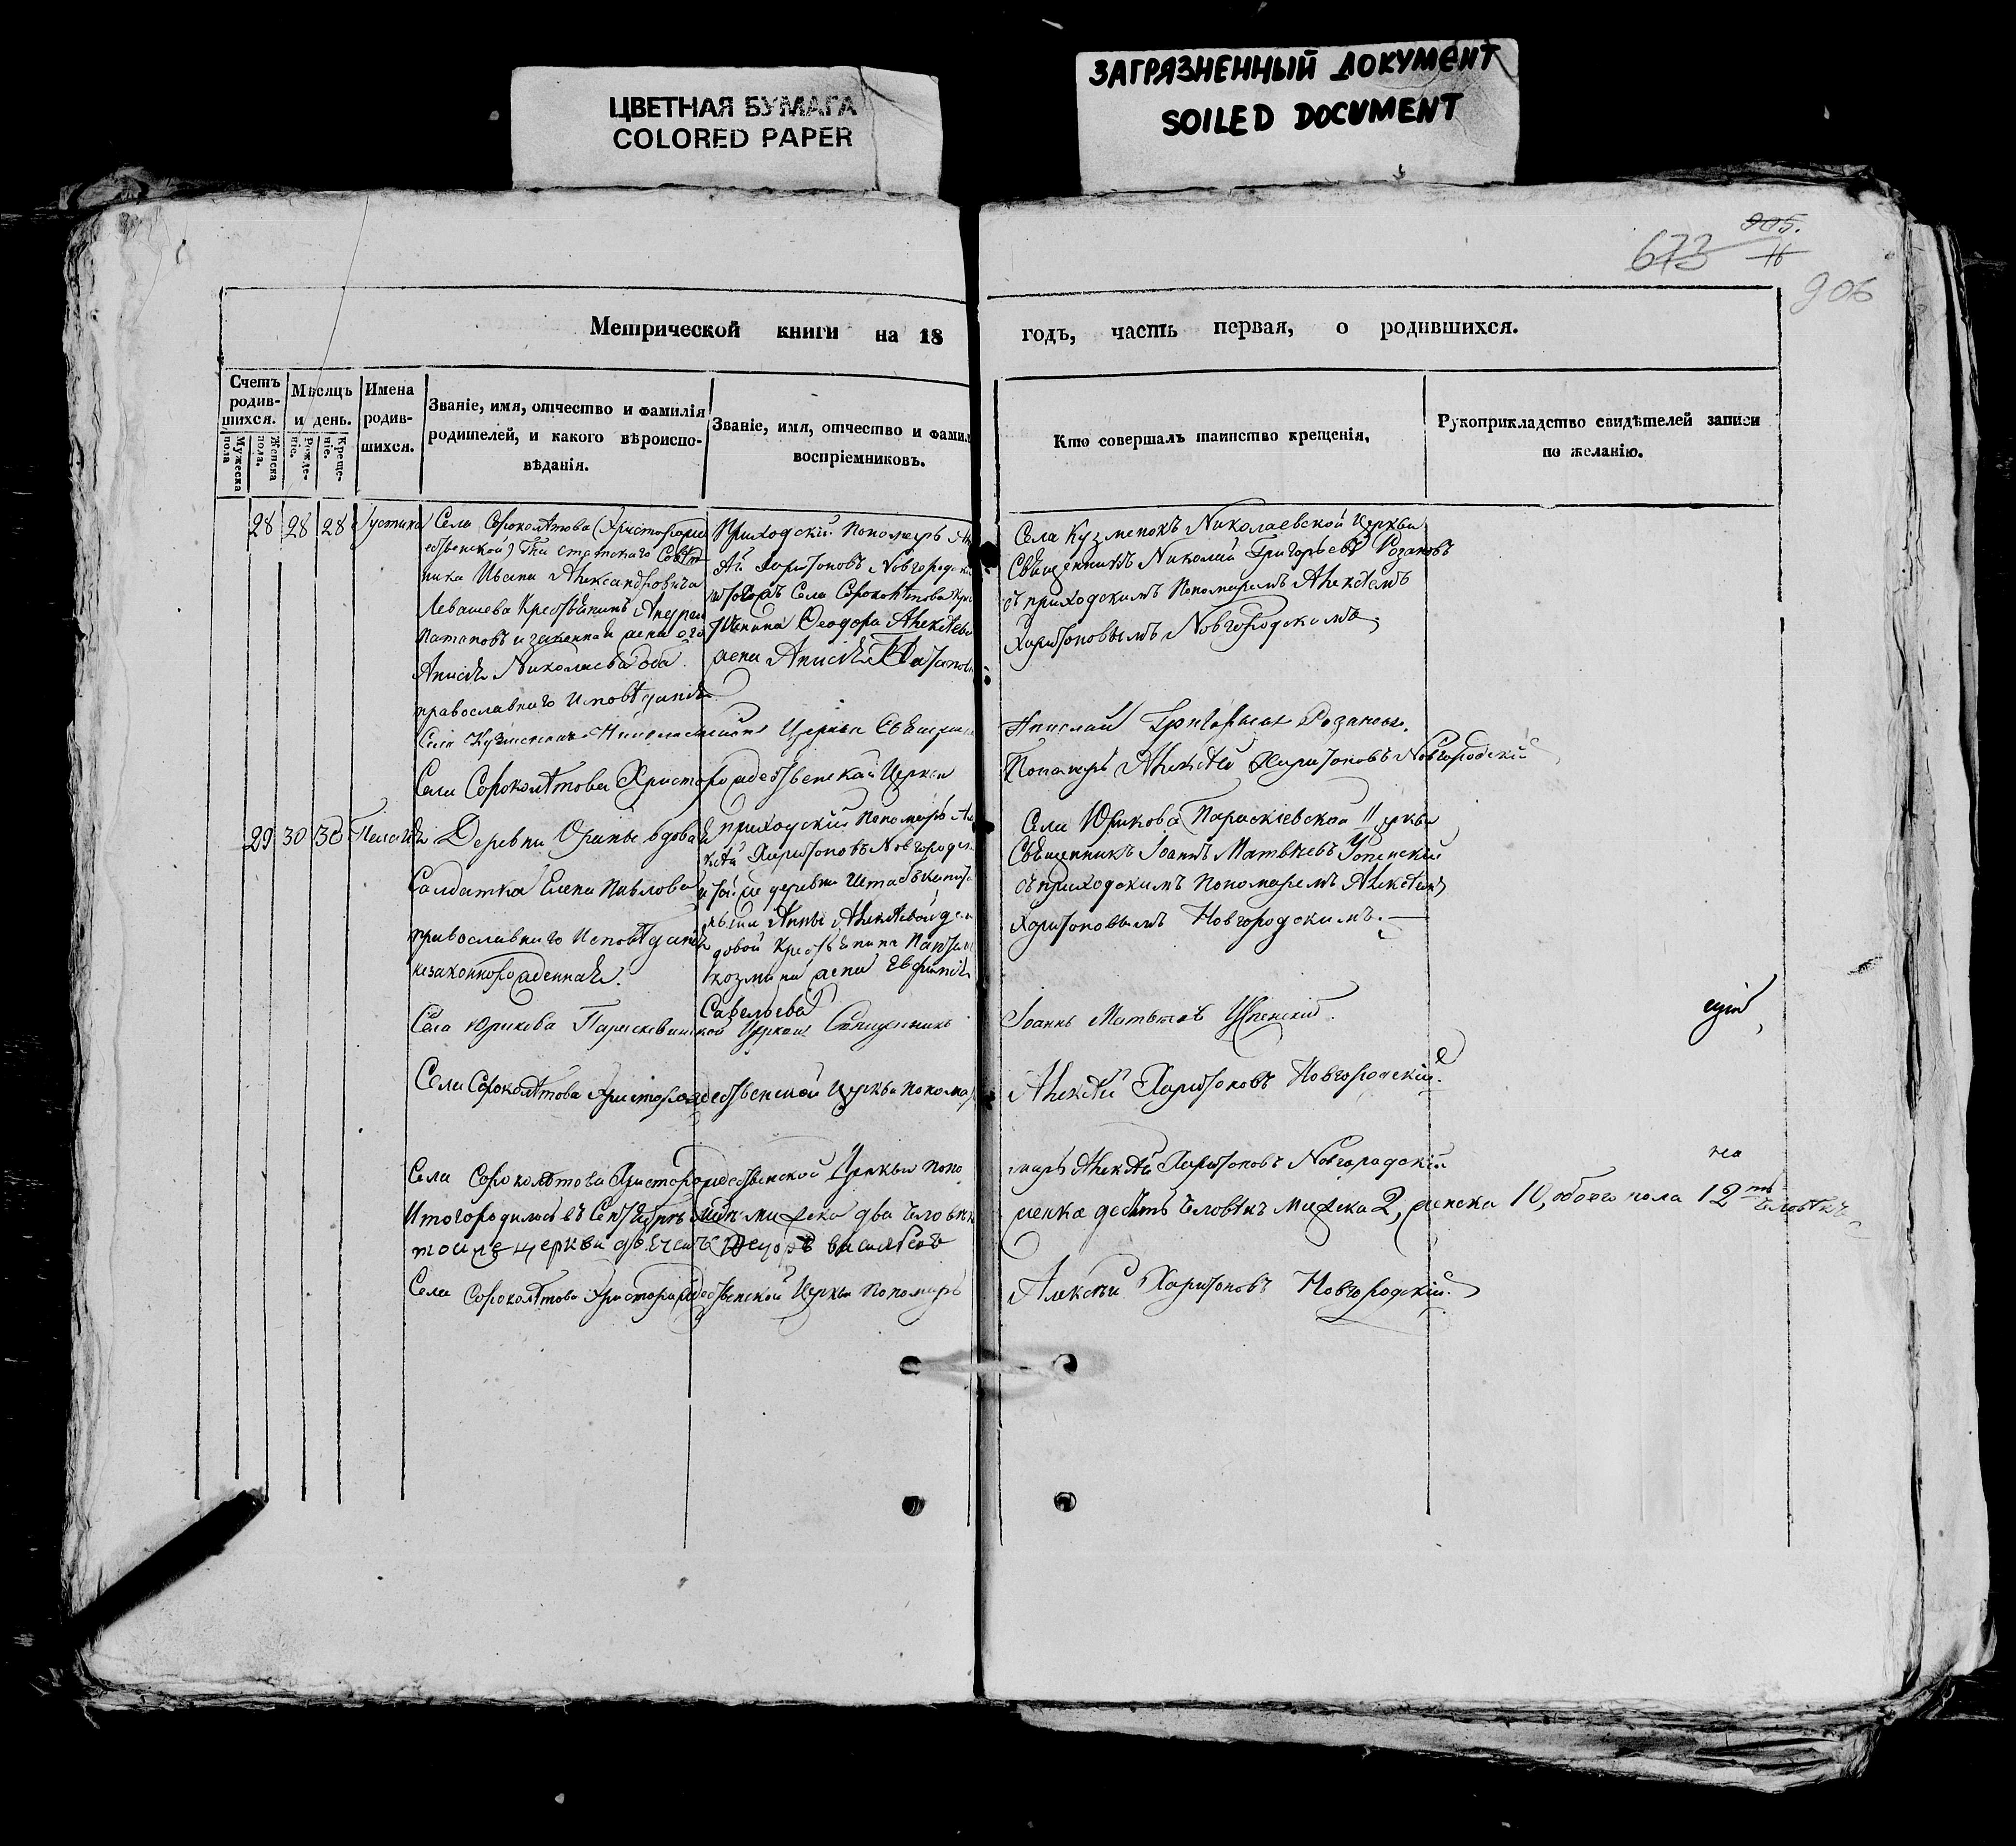 ЦВЕТНАЯ БУМАГА
COLORED PAPER
ЗАГРЯЗНЕННЫЙ ДОКУМЕНТ
SOILED DOCUMENT
673
905.
16
906
Метрической книги на 18 годъ, часть первая, о родившихся.
Счетъ родив-шихся.
Мужеска пола
Женска пола.
Мѣсяцъ и день.
Рожде-ніе.
Креще-ніе.
Имена родив-шихся.
Званіе, имя, отчество и фамилія родителей, и какого вѣроиспо-вѣданія.
Званіе, имя, отчество и фамил воспріемниковъ.
Кто совершалъ таинство крещенія,
Рукоприкладство свидѣтелей записи по желанію.
28 28 28 Іустина
Села Сороколѣтова (Христорожд
ественской) Гна статского Совѣт
ника Ивана Александровича
Левашева Крестьянинъ Андреи
Патаповъ и законная жена его
Анисія Николаева оба
православнаго исповѣданія
Приходскій Пономарь Ал
ѣй Харитоновъ Новгородскі
Села Сороколѣтова Кре
тьянина Ѳеодора Алексѣев
жена Анисія Патапов
Села Кузменокъ Николаевской Церкви
Священникъ Николай Григорьевъ Розановъ
съ приходскимъ Пономаремъ Алексѣемъ
Харитоновымъ Новгородскимъ
Села Кузменокъ Николаевской Церкви Священни Николай Григорьевъ Розановъ.
Села Сороколѣтова Христорождественской Церкви Пономарь Алексѣй Харитоновъ Новгородскій
29 30 30 Пелагія
Деревни вдовая
Солдатка Елена Павлова
православнаго исповѣданія
незаконнорожденная.
приходскій Пономарь Ал
ксѣй Харитоновъ Новгородск
деревни Штабскапит
Анны Алексѣевой
довой Крестьянина
козмина жена Евфимія
Савельева
Села Юрикова Параскіевской Церкви
Священникъ Іоаннъ Матвѣевъ Успенскій
съ приходскимъ Пономаремъ Алексѣемъ
Харитоновымъ Новгородскимъ.
Села Юрикова Параскевинской Церкви Священникъ Іоаннъ Матвѣевъ Успенскій.
Села Сороколѣтова Христорождественской Церкви Понома Алексѣй Харитоновъ Новгородскій.
Села Сороколѣтова Христорождественской Церкви поно марь Алексѣй Харитоновъ Новгородскій
Итого родилось въ Сентябрѣ мужеска два человѣк женска десять человѣкъ мужеска 2, женска 10, обоего пола 12ть человѣкъ
тоиже церкви дьячекъ Ѳедоръ василѣевъ
Села Сороколѣтова Христорождественской Церкви Пономарь Алексѣй Харитоновъ Новгородскій.